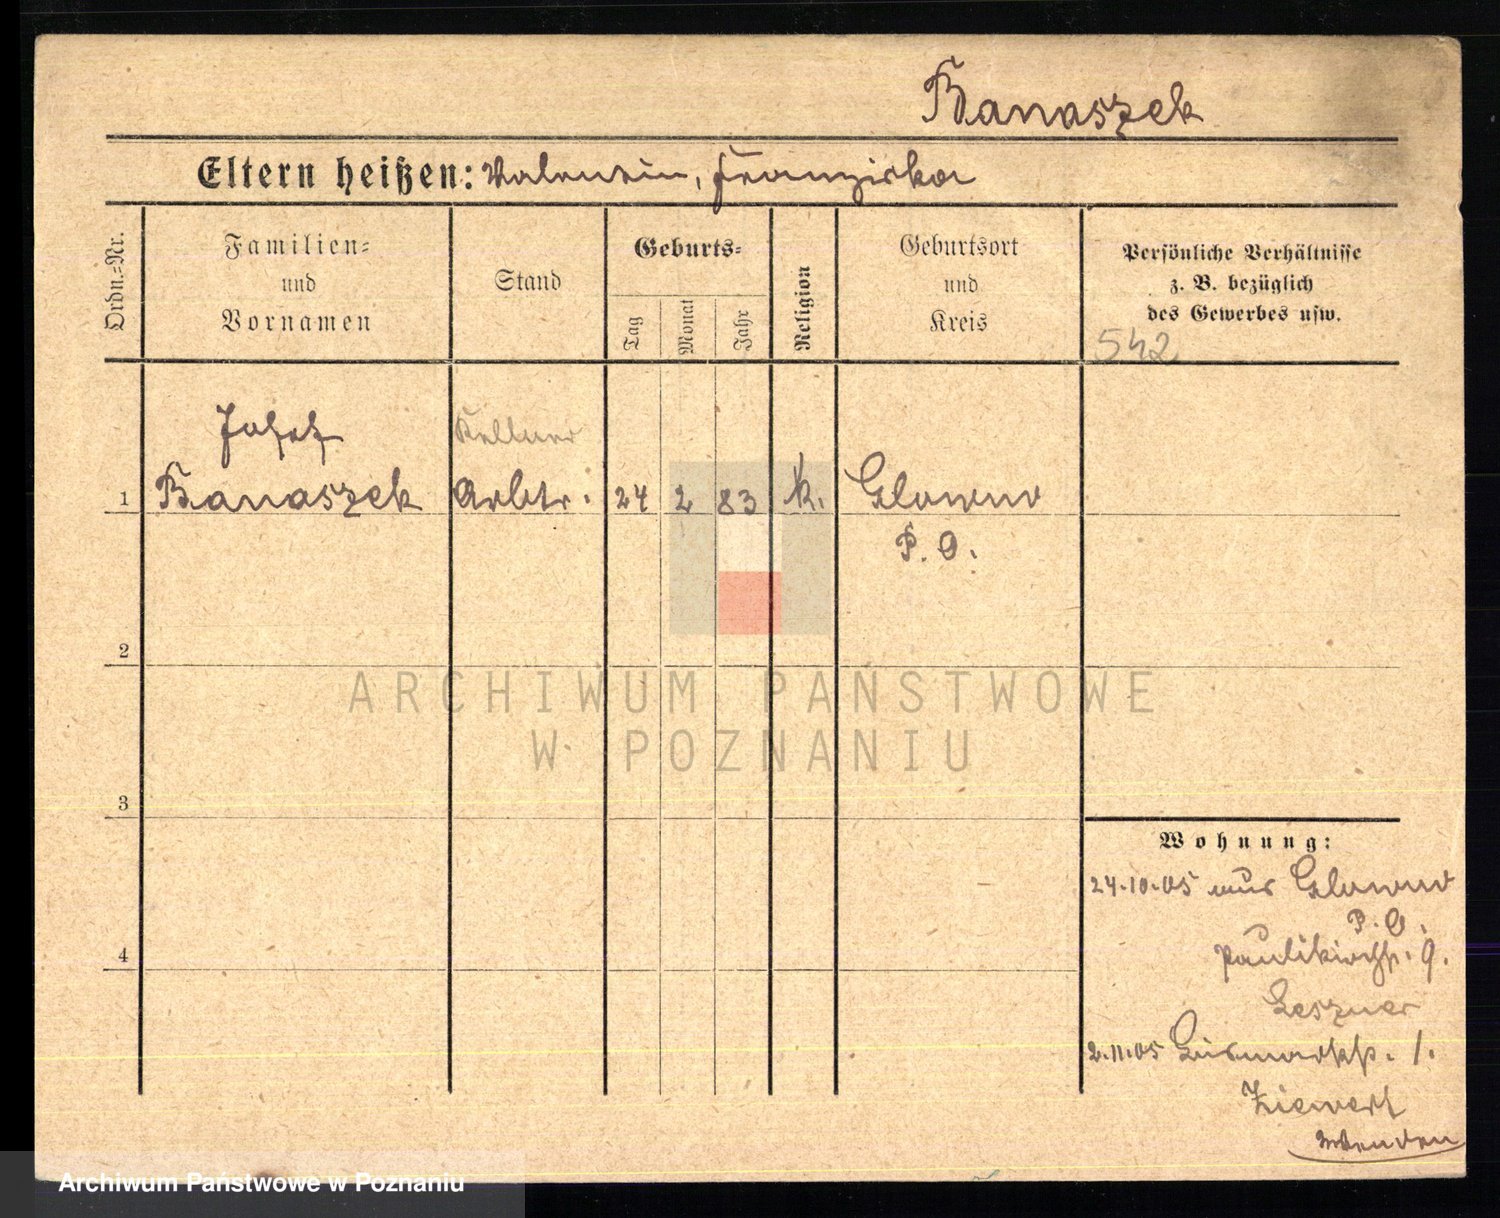 Banaszek
Eltern heißen: Valentin, Franziska
Ordn.=Nr.
Familien=
und
Vornamen
Stand
Geburts=
Tag
Monat
Jahr
Religion
Geburtsort
und
Kreis
Persönliche Verhältnisse
z. B. bezüglich
des Gewerbes usw.
542
Josef
Kellner
1 Banaszek Arbtr. 24 2 83 k. Glowno
P. O.
2
3
4
ARCHIWUM PAŃSTWOWE
W POZNANIU
Wohnung:
24.10.05 aus Glowno
P. O.
Paulikirchstr. 9.
Leszner
2.11.05 Bismarckstr. 1.
Ziewert
Archiwum Państwowe w Poznaniu